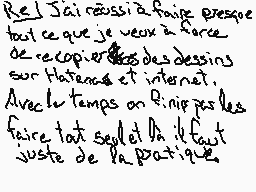 Re] J'ai réussi à faire presque
tout ce que je veux à force
de recopier des dessins
sur Hatena et internet.
Avec le temps on finir par les
faire tout seul et là il faut
juste de la pratique.